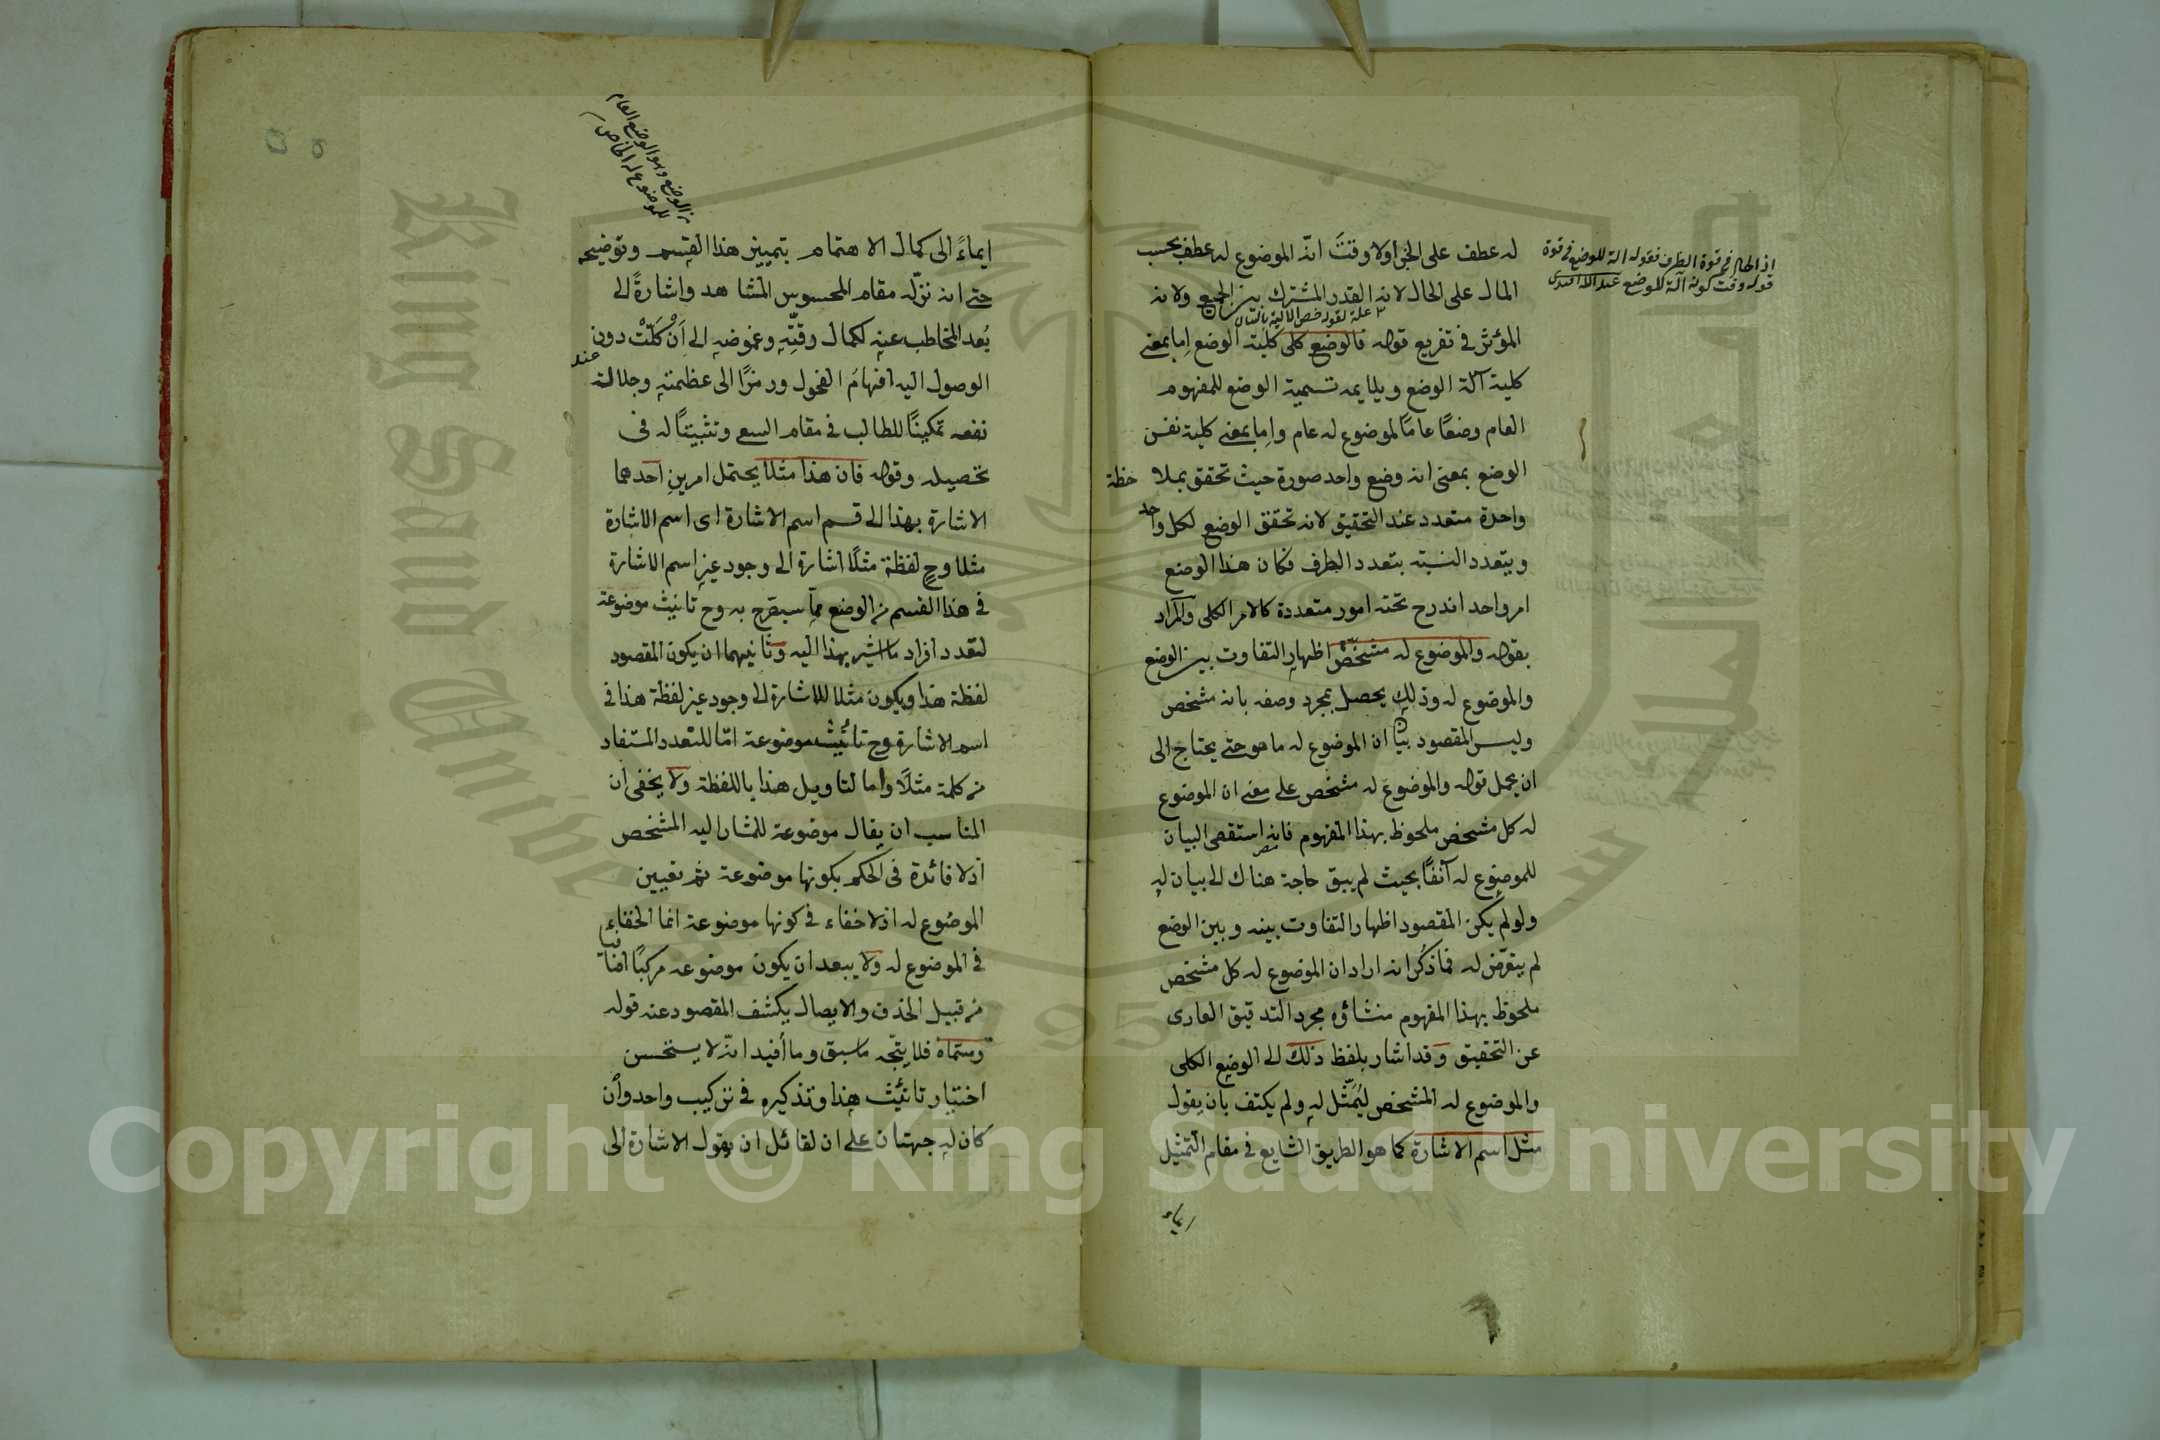 له عطف على الجزاولا وقتَ انّه الموضوع له عطف بحسب
المال على الحال لانه القدر المشترك بين الجميع ولانه
المؤثر فى تفريع قوله فالوضع كلى كلية الوضع اما بمعنى
كلية آلة الوضع ويلايمه تسمية الوضع للمفهوم
العام وضعًا عامًا لموضوع له عام واما بمعنى كلية نفس
الوضع بمعنى انه وضع واحد صورة حيث تحقق بملاحظة
واحدة متعدد عند التحقيق لانه تحقق الوضع لكل واحد
ويتعدد النسبته بتعدد الطرف فكان هذا الوضع
امر واحد اندرج تحته امور متعددة كالامر الكلى والمراد
بقوله والموضوع له مشخّصٌ اظهار التفاوت بين الوضع
والموضوع له وذلك يحصل بمجرد وصفه بانه مشخص
وليس المقصود بيان ان الموضوع له ما هو حتى يحتاج الى
ان يحمل قوله والموضوع له مشخص على معنى ان الموضوع
له كل مشخص ملحوظ بهذا المفهوم فانه استقصى البيان
للموضوع له آنفًا بحيث لم يبق حاجة هناك الى بيان له
ولو لم يكن المقصود اظهار التفاوت بينه وبين الوضع
لم يتعرّض له فما ذكر انه اراد ان الموضوع له كل مشخص
ملحوظ بهذا المفهوم منشاؤه مجرد التدقيق العارى
عن التحقيق وقد اشار بلفظ ذلك الى الوضع الكلى
والموضوع له المشخص ليُمَثّل له ولم يكتف بان يقول
مثل اسم الاشارة كما هو الطريق الشايع فى مقام التمثيل
ايماء
اذ الحال فى قوة الظرف فقوله آلة للوضع فى قوة
قوله وقت كونه آلة للوضع عبد الله افندى
٣ علة لقوله
ايماءً الى كمال الاهتمام بتمييز هذا القسم وتوضيحه
حتى انه نزّله مقام المحسوس المشاهد واشارةً الى
بُعد المخاطب عنه لكمال دقّته وغموضه الى اَنْ كَلّتْ دون
الوصول اليه افهامُ الفحول ورمزًا الى عظمته وجلالته عند
نفعه تمكينًا للطالب فى مقام السعى وتثبيتًا له فى
تحصيله وقوله فان هذا مثلا يحتمل امرين احدهما
الاشارة بهذا الى قسم اسم الاشارة اى اسم الاشارة
مثلا وح لفظة مثلًا اشارة الى وجود غير اسم الاشارة
فى هذا القسم من الوضع مما سيصرّح به وح تانيث موضوعة
لتعدد افراد ما اشير بهذا اليه وثانيهما ان يكون المقصود
لفظة هذا ويكون مثلا للاشارة الى وجود غير لفظة هذا فى
اسم الاشارة وح تانيث موضوعة امّا للتعدد المستفاد
من كلمة مثلًا واما لتاويل هذا باللفظة ولا يخفى ان
المناسب ان يقال موضوعة للمشار اليه المشخص
اذ لا فائدة فى الحكم بكونها موضوعة ثم تعيين
الموضوع له اذ لا خفاء فى كونها موضوعة انما الخفاء
فى الموضوع له ولا يبعد ان يكون موضوعه مركبًا اضافيا
من قبيل الحذف والايصال يكشف المقصود عنه قوله
ومسماه فلا يتّجه ما سبق وما أفيد انّه لا يستحسن
اختيار تانيث هذا وتذكيره فى تركيب واحد وأن
كان له جهتان على ان لقائل ان يقول الاشارة الى
من الوضع وهو الوضع العام
للموضوع له الخاص
King Saud Unive
1957
Copyright © King Saud University